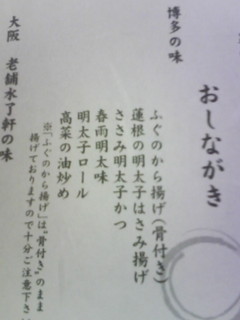 おしながき
博多の味
ふぐのから揚げ(骨付き)
蓮根の明太子はさみ揚げ
ささみ明太子かつ
春雨明太味
明太子ロール
高菜の油炒め
※『ふぐのから揚げ』は"骨付き"のまま
揚げておりますので十分ご注意下さ
大阪 老舗水了軒の味